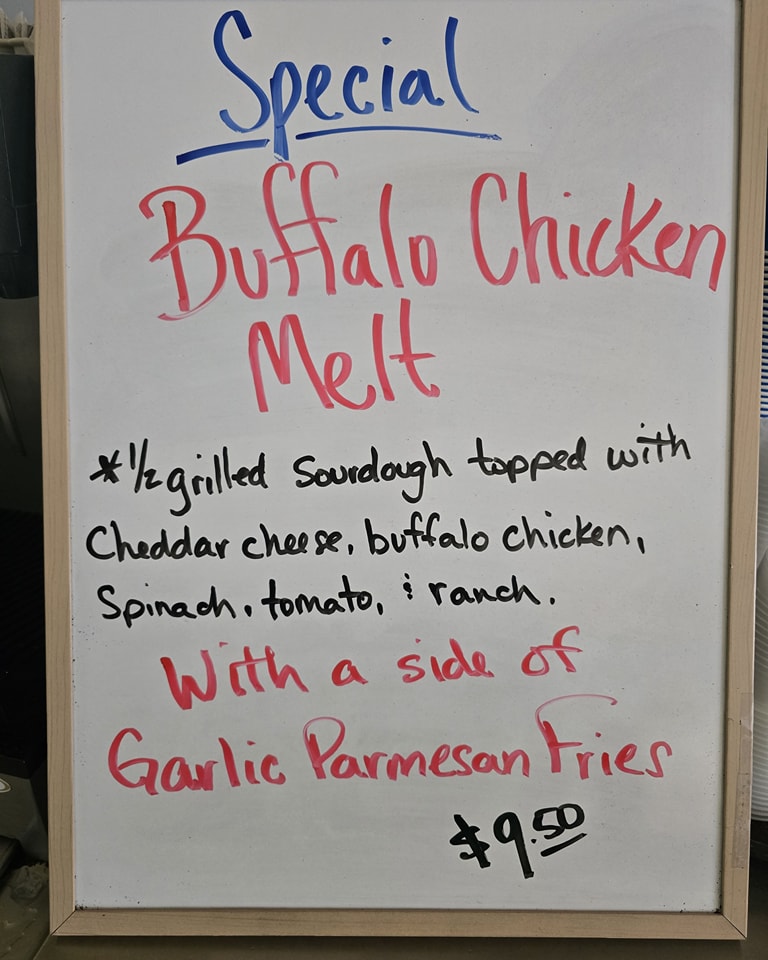 Special
Buffalo Chicken
Melt
*1/2 grilled Sourdough topped with
Cheddar cheese, buffalo chicken,
Spinach, tomato, & ranch.
With a side of
Garlic Parmesan Fries
$9.50